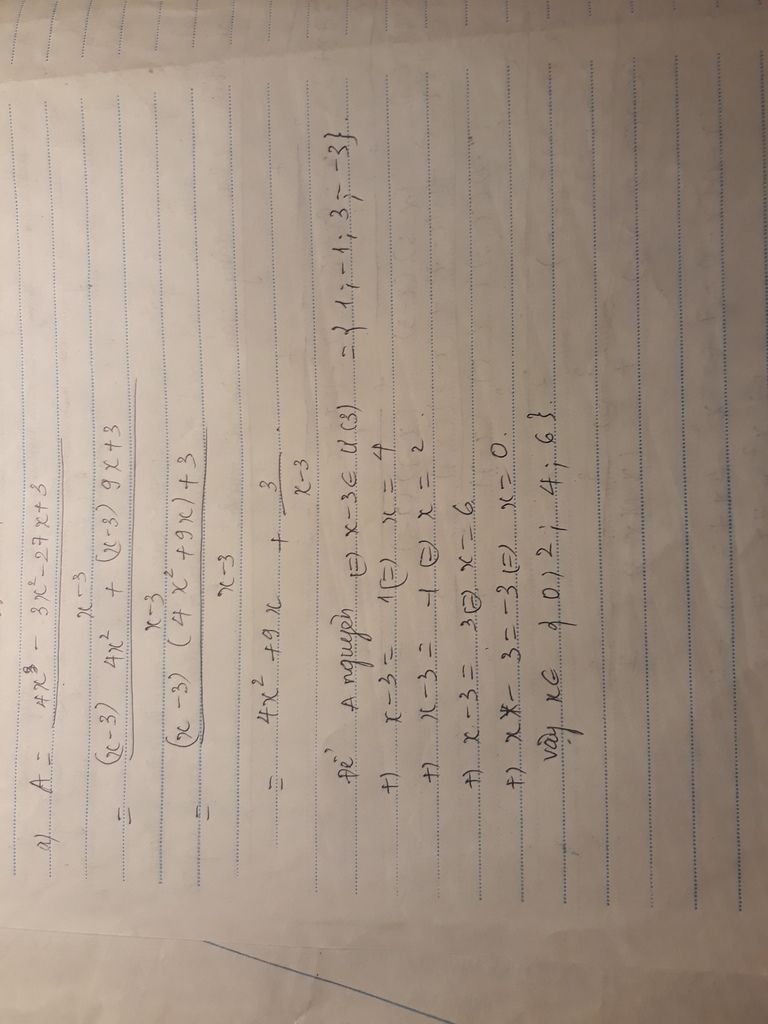 a) A = 4x³ - 3x² - 27x + 3
x - 3
= (x-3) 4x² + (x-3) 9x + 3
x - 3
= (x-3) (4x² + 9x) + 3
x - 3
= 4x² + 9x + 3
x - 3
Để A nguyên (=) x-3 ∈ Ư(3) = { 1; -1; 3; -3}
+) x-3 = 1 (=) x = 4
+) x-3 = -1 (=) x = 2
+) x-3 = 3 (=) x = 6
+) x - 3 = -3 (=) x = 0.
vậy x ∈ { 0; 2; 4; 6}